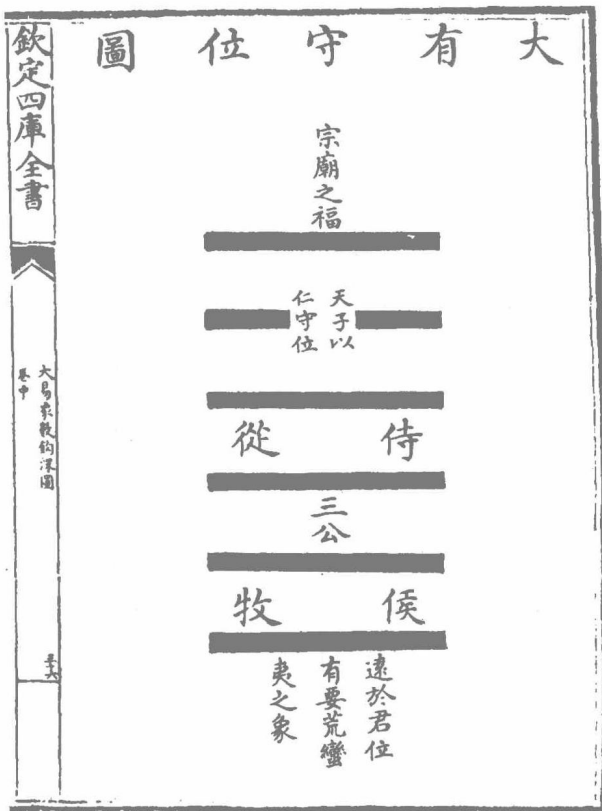 大有守位圖
宗廟之福
天子以
仁守位
侍從
三公
侯牧
遠於君位
有要荒蠻
夷之象
欽定四庫全書
大易象數鈎深圖
卷中